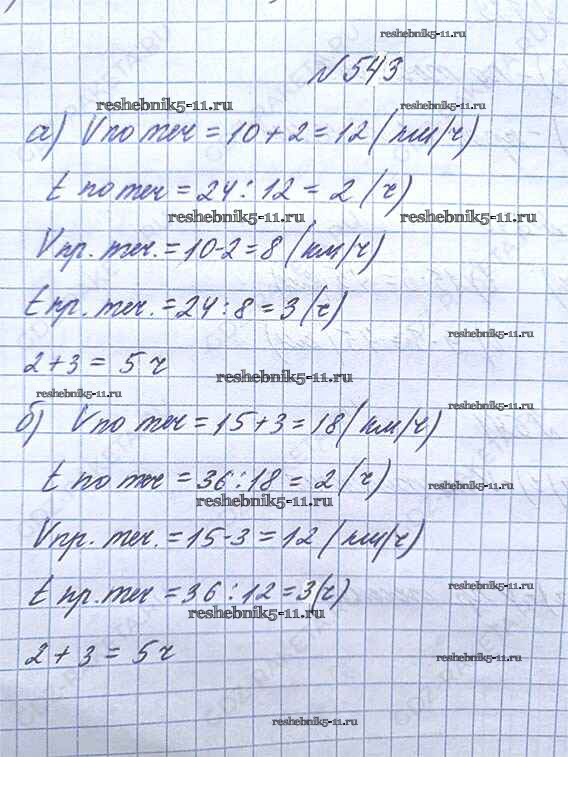 reshebnik5-11.ru
№543
reshebnik5-11.ru reshebnik5-11.ru
а) Vпо теч = 10 + 2 = 12 (км/ч)
t по теч = 24 : 12 = 2 (ч)
reshebnik5-11.ru reshebnik5-11.ru
Vпр. теч. = 10 - 2 = 8 (км/ч)
t пр. теч. = 24 : 8 = 3 (ч)
reshebnik5-11.ru
2 + 3 = 5 ч
reshebnik5-11.ru
reshebnik5-11.ru reshebnik5-11.ru
б) Vпо теч = 15 + 3 = 18 (км/ч)
t по теч = 36 : 18 = 2 (ч)
reshebnik5-11.ru reshebnik5-11.ru
Vпр. теч. = 15 - 3 = 12 (км/ч)
t пр. теч = 36 : 12 = 3 (ч)
reshebnik5-11.ru reshebnik5-11.ru
2 + 3 = 5 ч
reshebnik5-11.ru
reshebnik5-11.ru